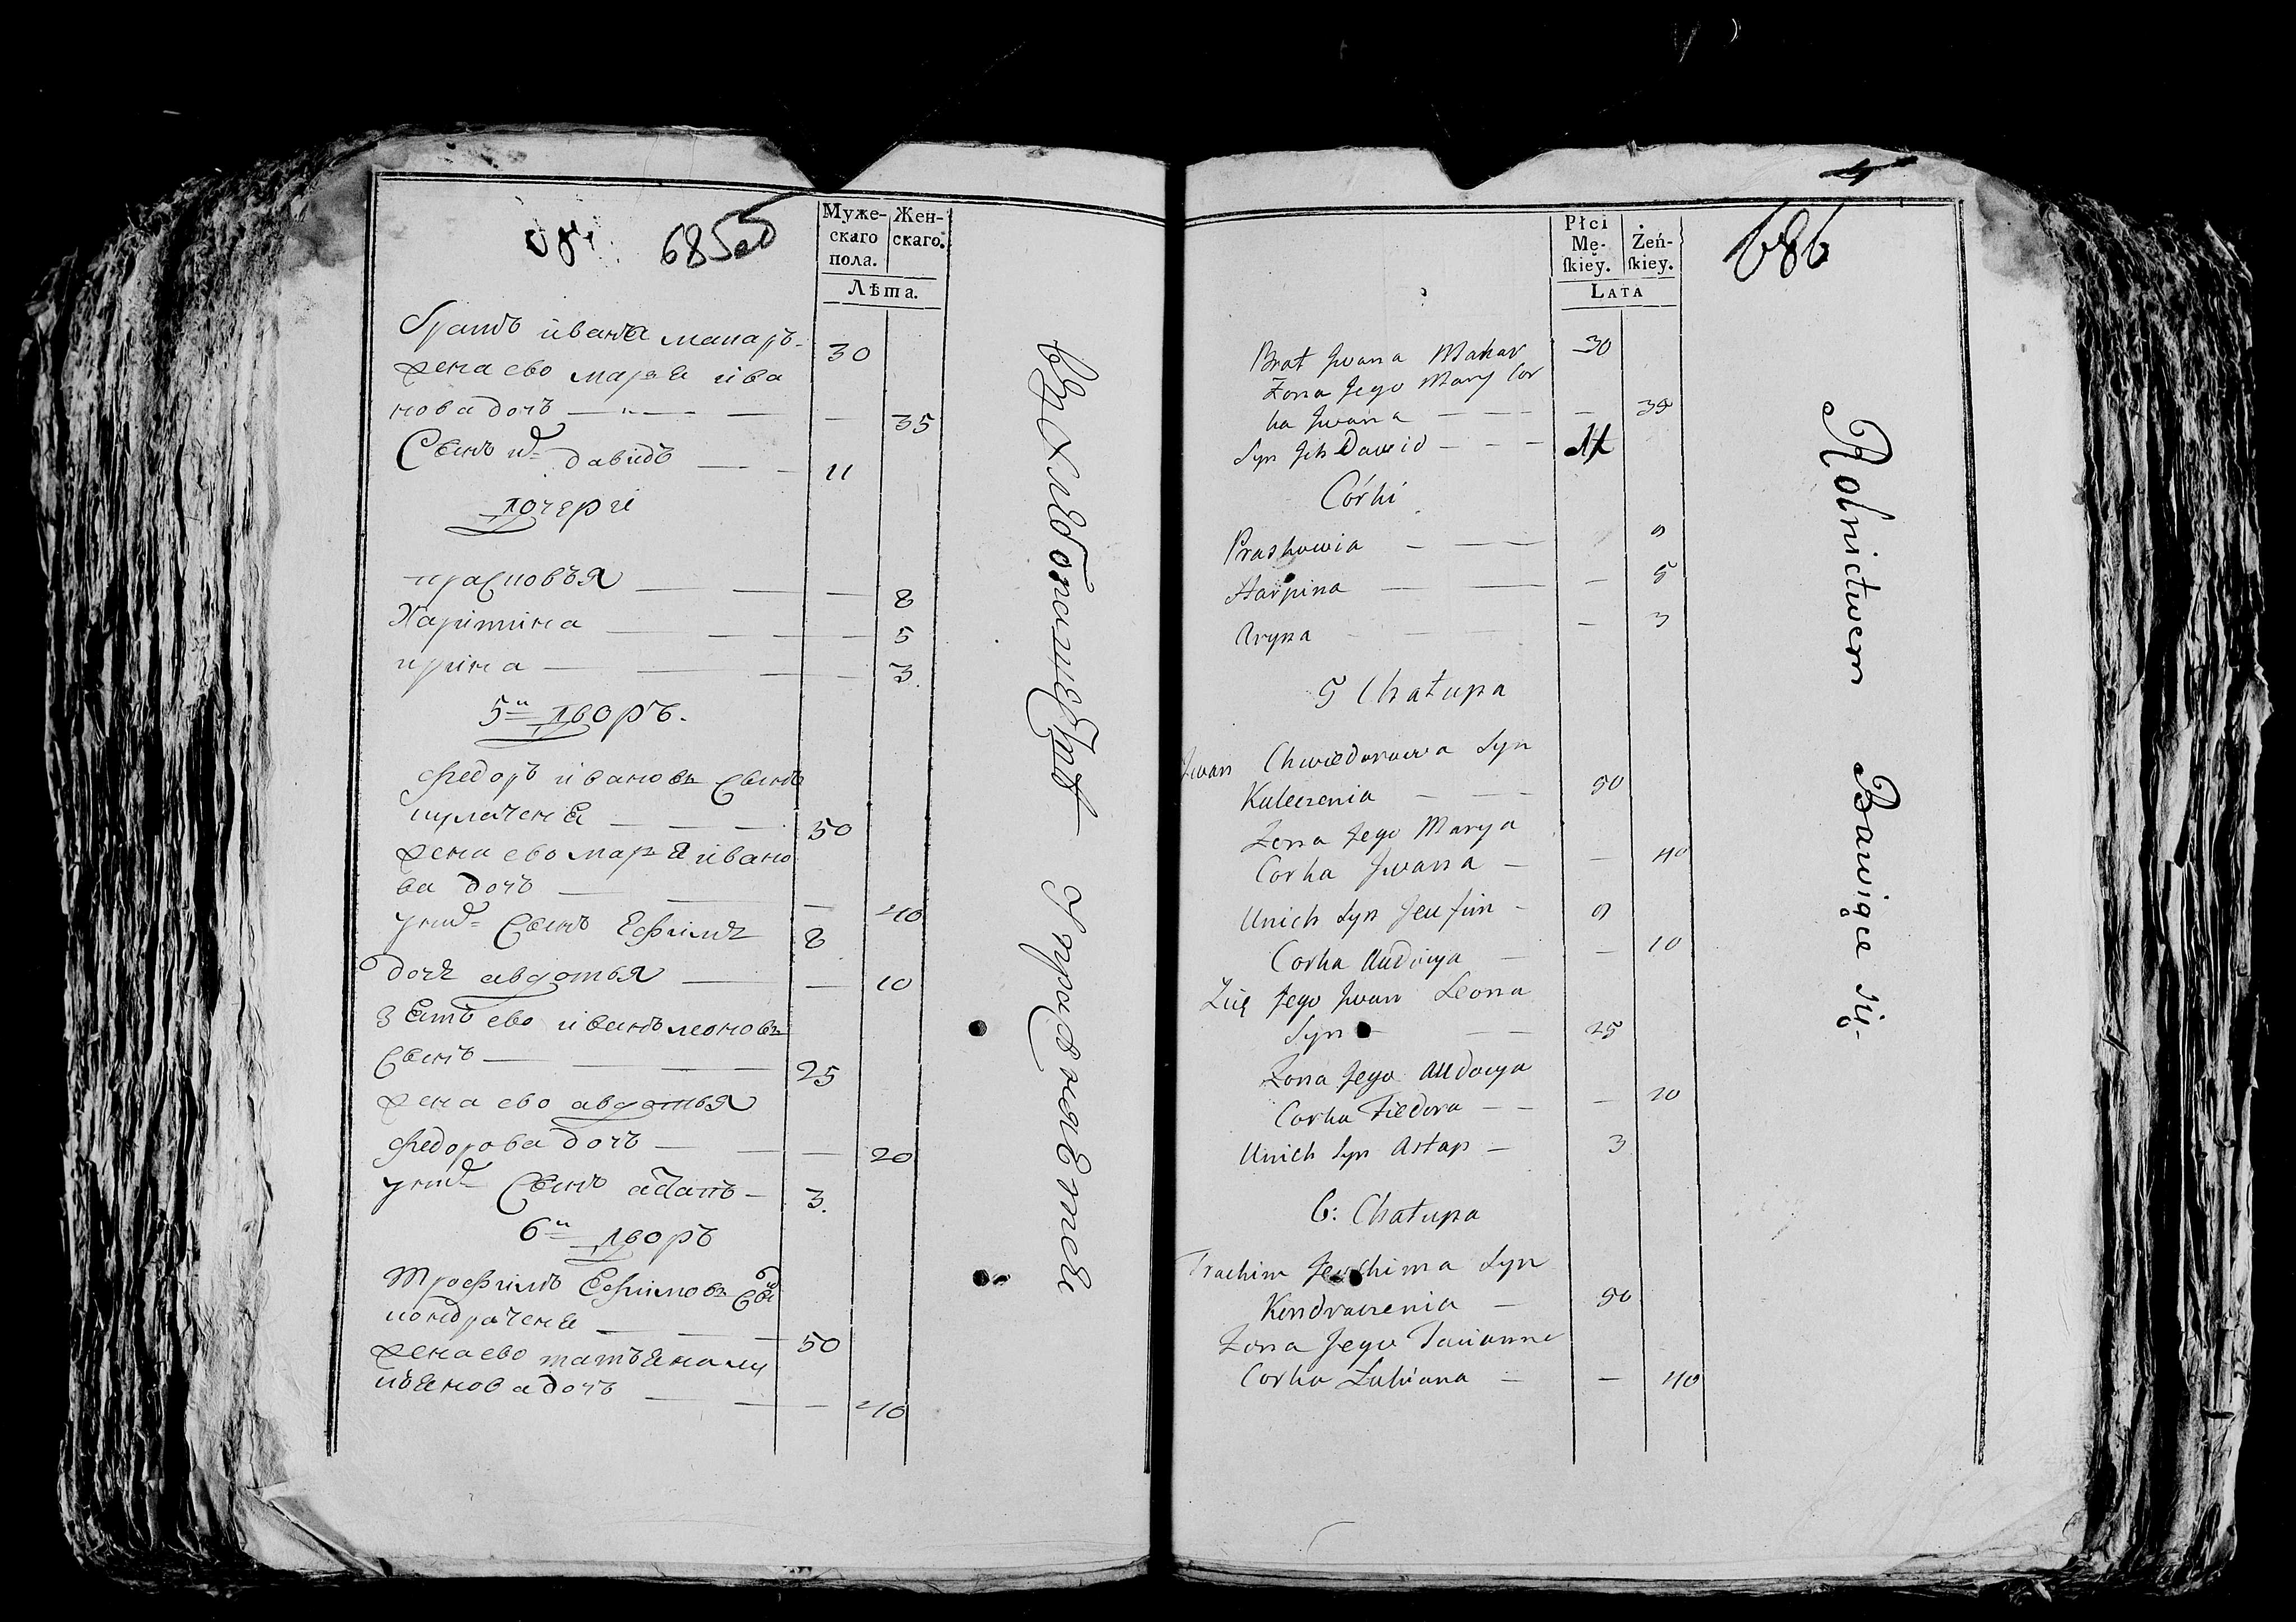 685об
Муже-
скаго
пола.
Жен-
скаго.
Лѣта.
братъ ивана макаръ - 30
жена ево марья ива
нова дочь — — — 35
Сынъ ихъ давидъ — — 11
дочери
прасковья — — — 8
Харитина — — — 5
ирина — — — 3.
5й дворъ.
Федоръ ивановъ Сынъ
кулаченя — — — 50
жена ево марья ивано
ва дочь — — — 40
у них Сынъ Ефимъ 8
дочь авдотья — — 10
зять ево иванъ леоновъ
Сынъ — — — 25
жена ево авдотья
Федорова дочь — — — 20
у них Сынъ астапъ — 3.
6й дворъ
Трофимъ Ефимовъ Сынъ
кондраченя — — — 50
жена ево татьяна лу
кьянова дочь — — — 40
въ хлебопашестве упражняются
686
Płci
Mę-
ſkiey.
Żeń-
ſkiey.
LATA
Brat Jwana Makar 30
Zona Jego Mary Cor
ka Jwana — — — 35
Syn Jch Dawid - - - 11
Córki
Praskowia - — — 9
Harpina — — — 5
Aryna — — — 3
5 Chatupa
Jwan Chwiedorowa Syn
Kuleczenia — — — 50
Zona Jego Marya
Corka Jwana — — 40
Unich Syn Jeufim - 9
Corka Audocya — — 10
Zię Jego Jwan Leona
Syn — — 25
Zona Jego Audocya
Corka Fiedora — — — 20
Unich Syn Astap — 3
6: Chatupa
Trachim Jeuchima Syn
Kondraczenia — 50
Zona Jego Tacianna
Corka Łukiana — — 40
Rolnictwem Bawiące się.